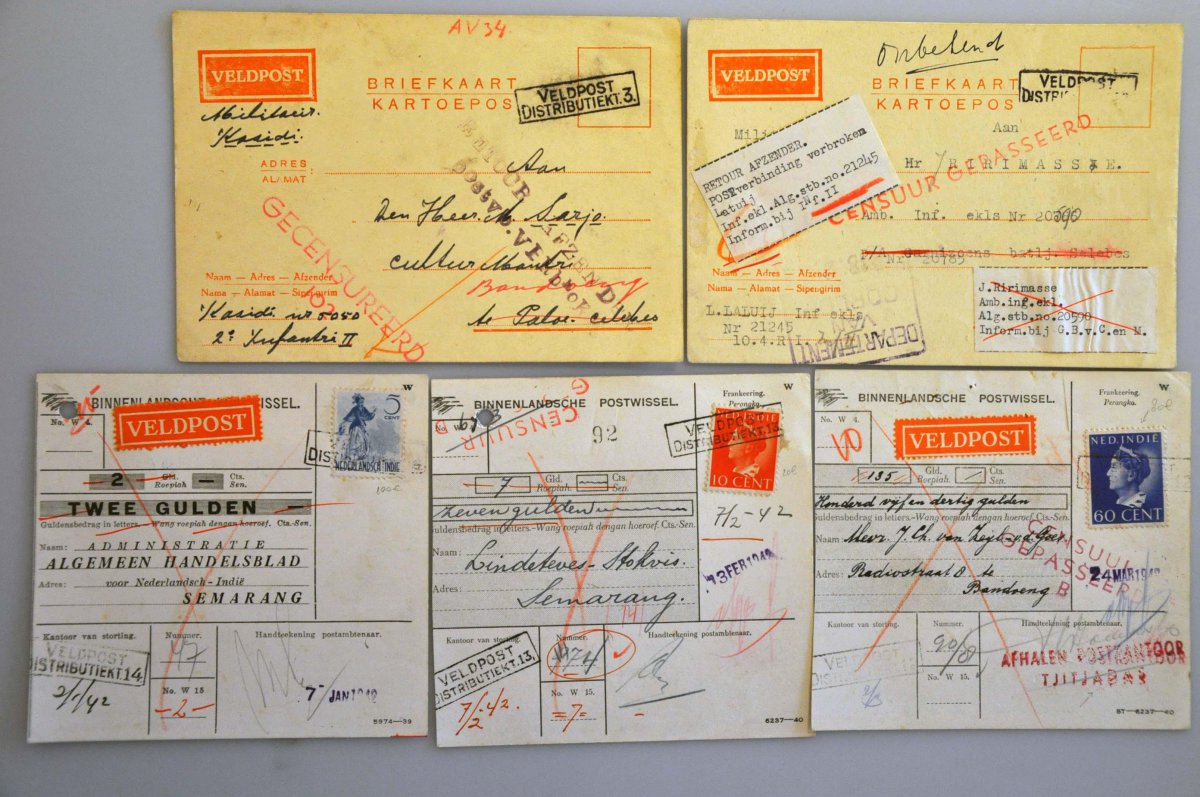 AV34
VELDPOST
BRIEFKAART
KARTOEPOS
VELDPOST
DISTRIBUTIEKT.3.
Militair.
Kasidi.
ADRES
ALAMAT
Aan
Den Heer. M. Sarjo.
Cultur Mantri
Bandoeng
te Paloe. Celebes
GECENSUREERD
Naam — Adres — Afzender
Nama — Alamat — Sipengirim
Kasidi nr 5050
2e Infantri II
Onbekend
VELDPOST
BRIEFKAART
KARTOEPOS
VELDPOST
Aan
RETOUR AFZENDER.
POSTverbinding verbroken
Latuij
Inf.ekl.Alg.stb.no.21245
Inform.bij Inf.II
CENSUUR GEPASSEERD
Hr RIRIMASSIE.
Amb. Inf. ekls Nr 20590
p/A Garnizoens batlj. Celebes
Nr 20785
Naam — Adres — Afzender
Nama — Alamat — Sipengirim
L.LALUIJ Inf ekls
Nr 21245
10.4.R.I.
DEPARTEMENT
VAN
J.Ririmasse
Amb.inf.ekl.
Alg.stb.no.20590
Inform.bij G.B.v.C.en M.
W
BINNENLANDSCHE POSTWISSEL.
No. W 4.
VELDPOST
5
CENT
NEDERLANDSCH INDIË
100c
2 Gld. Roepiah — Cts. Sen.
TWEE GULDEN
Guldensbedrag in letters.—Wang roepiah dengan hoeroef. Cts.-Sen.
Naam: ADMINISTRATIE
ALGEMEEN HANDELSBLAD
Adres: voor Nederlandsch-Indië
SEMARANG
Kantoor van storting.
Nummer.
Handteekening postambtenaar.
VELDPOST
DISTRIBUTIEKT.14.
47
2/1/42
No. W 15
-2-
7 JAN 1942
5974—39
W
BINNENLANDSCHE POSTWISSEL.
Frankeering.
Perangko.
No. W 4.
CENSUUR
92
VELDPOST
DISTRIBUTIEKT.13.
NED. INDIE
10 CENT
7 Gld. Roepiah. Cts. Sen.
zeven gulden
7/2-42
Guldensbedrag in letters.—Wang roepiah dengan hoeroef. Cts.-Sen.
Naam:
Lindeteves-Stokvis
Adres:
Semarang.
13 FEB 1942
Kantoor van storting.
Nummer.
Handteekening postambtenaar.
VELDPOST
DISTRIBUTIEKT.13.
474
7/2-42.
No. W 15.
=7=
6237—40
W
BINNENLANDSCHE POSTWISSEL.
Frankeering.
Perangko.
No. W 4.
VELDPOST
NED. INDIE
60 CENT
135 Gld. Roepiah. Cts. Sen.
Honderd vijf en dertig gulden
Guldensbedrag in letters.—Wang roepiah dengan hoeroef. Cts.-Sen.
Naam: Mevr. J. Ch. van Zeijl-v.d. Geer
CENSUUR
GEPASSEERD
B
Adres: Radiostraat 8 te
Bandoeng
24 MAR 1942
Kantoor van storting.
Nummer.
Handteekening postambtenaar.
90/8
No. W 15.
AFHALEN POSTKANTOOR
TJITJADAS
BT—6237—40